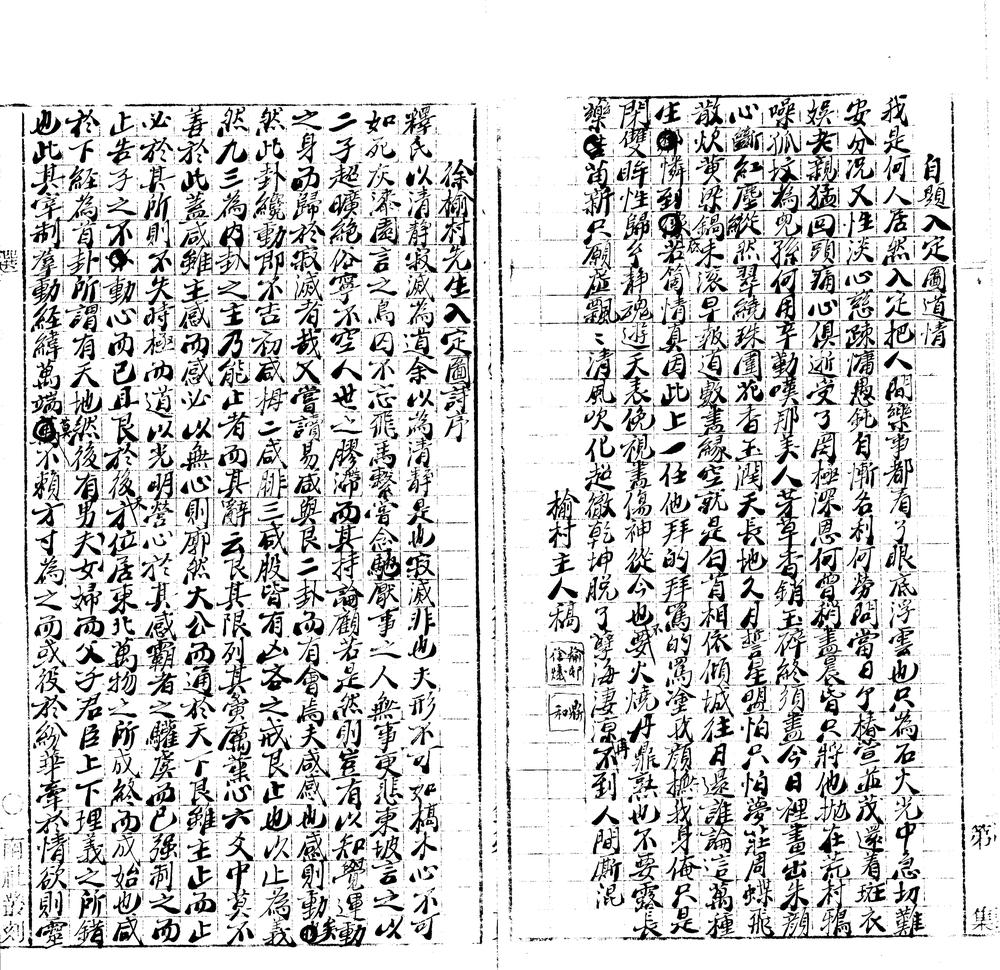 自題入定圖道情
我是何人居然入定把人間樂事都看了眼底浮雲也只為石火光中急切難
安分況又性淡心慈疎慵愚鈍自慚名利何勞問當日个椿萱並茂還着斑衣
娛老親猛回頭痛心俱逝受了罔極深恩何曾稍盡晨昏只將他拋在荒村鴉
噪孤墳為兒孫何用辛勤嘆那美人芳草香銷玉碎終須盡今日裡畫出朱顏
心斷紅塵縱然翠繞珠圍花香玉潤天長地久月誓星盟怕只怕夢莊周蝶飛
散炊黃粱鍋未滾早報道敷畫緣空就是勾首相依傾城往日還誰論言萬種
生憐到若箇情真因此上一任他拜的拜罵的罵塗我顏撫我身俺只是
閉雙眸性歸乎靜魂遊天表俛視畫傷神從今也不要火燒丹鼎熟也不要露長
藥苗新只願虛飄飄清風吹化超徹乾坤脫了孽海淒涼不再到人間廝混
榆村主人稿
徐榆村先生入定圖詩序
釋氏以清靜寂滅為道余以為清靜是也寂滅非也夫形不可如槁木心不可
如死灰漆園言之鳥囚不忘飛馬繫常念馳厭事之人無事更悲東坡言之以
二子超曠絕俗寧不空人世之膠滯而其持論顧若是然則豈有以知覺運動
之身而歸於寂滅者哉又嘗讀易咸與艮二卦而有會焉夫咸感也感則動矣
然此卦纔動即不吉初咸拇二咸腓三咸股皆有凶吝之戒艮止也以止為義
然九三為內卦之主乃能止者而其辭云艮其限列其夤厲薰心六爻中莫不
善於此蓋咸雖主感而感必以無心則廓然大公而通於天下艮雖主止而止
必於其所則不失時極而道以光明營心於其感霸者之驩虞而已强制之而
止告子之不動心而已且艮於後才位居東北萬物之所成終而成始也咸
於下經為首卦所謂有天地然後有男夫女婦而父子君臣上下理義之所錯
也此其宰制羣動經緯萬端莫不賴方寸為之而或役於紛華牽於情欲則靈
選
第
集